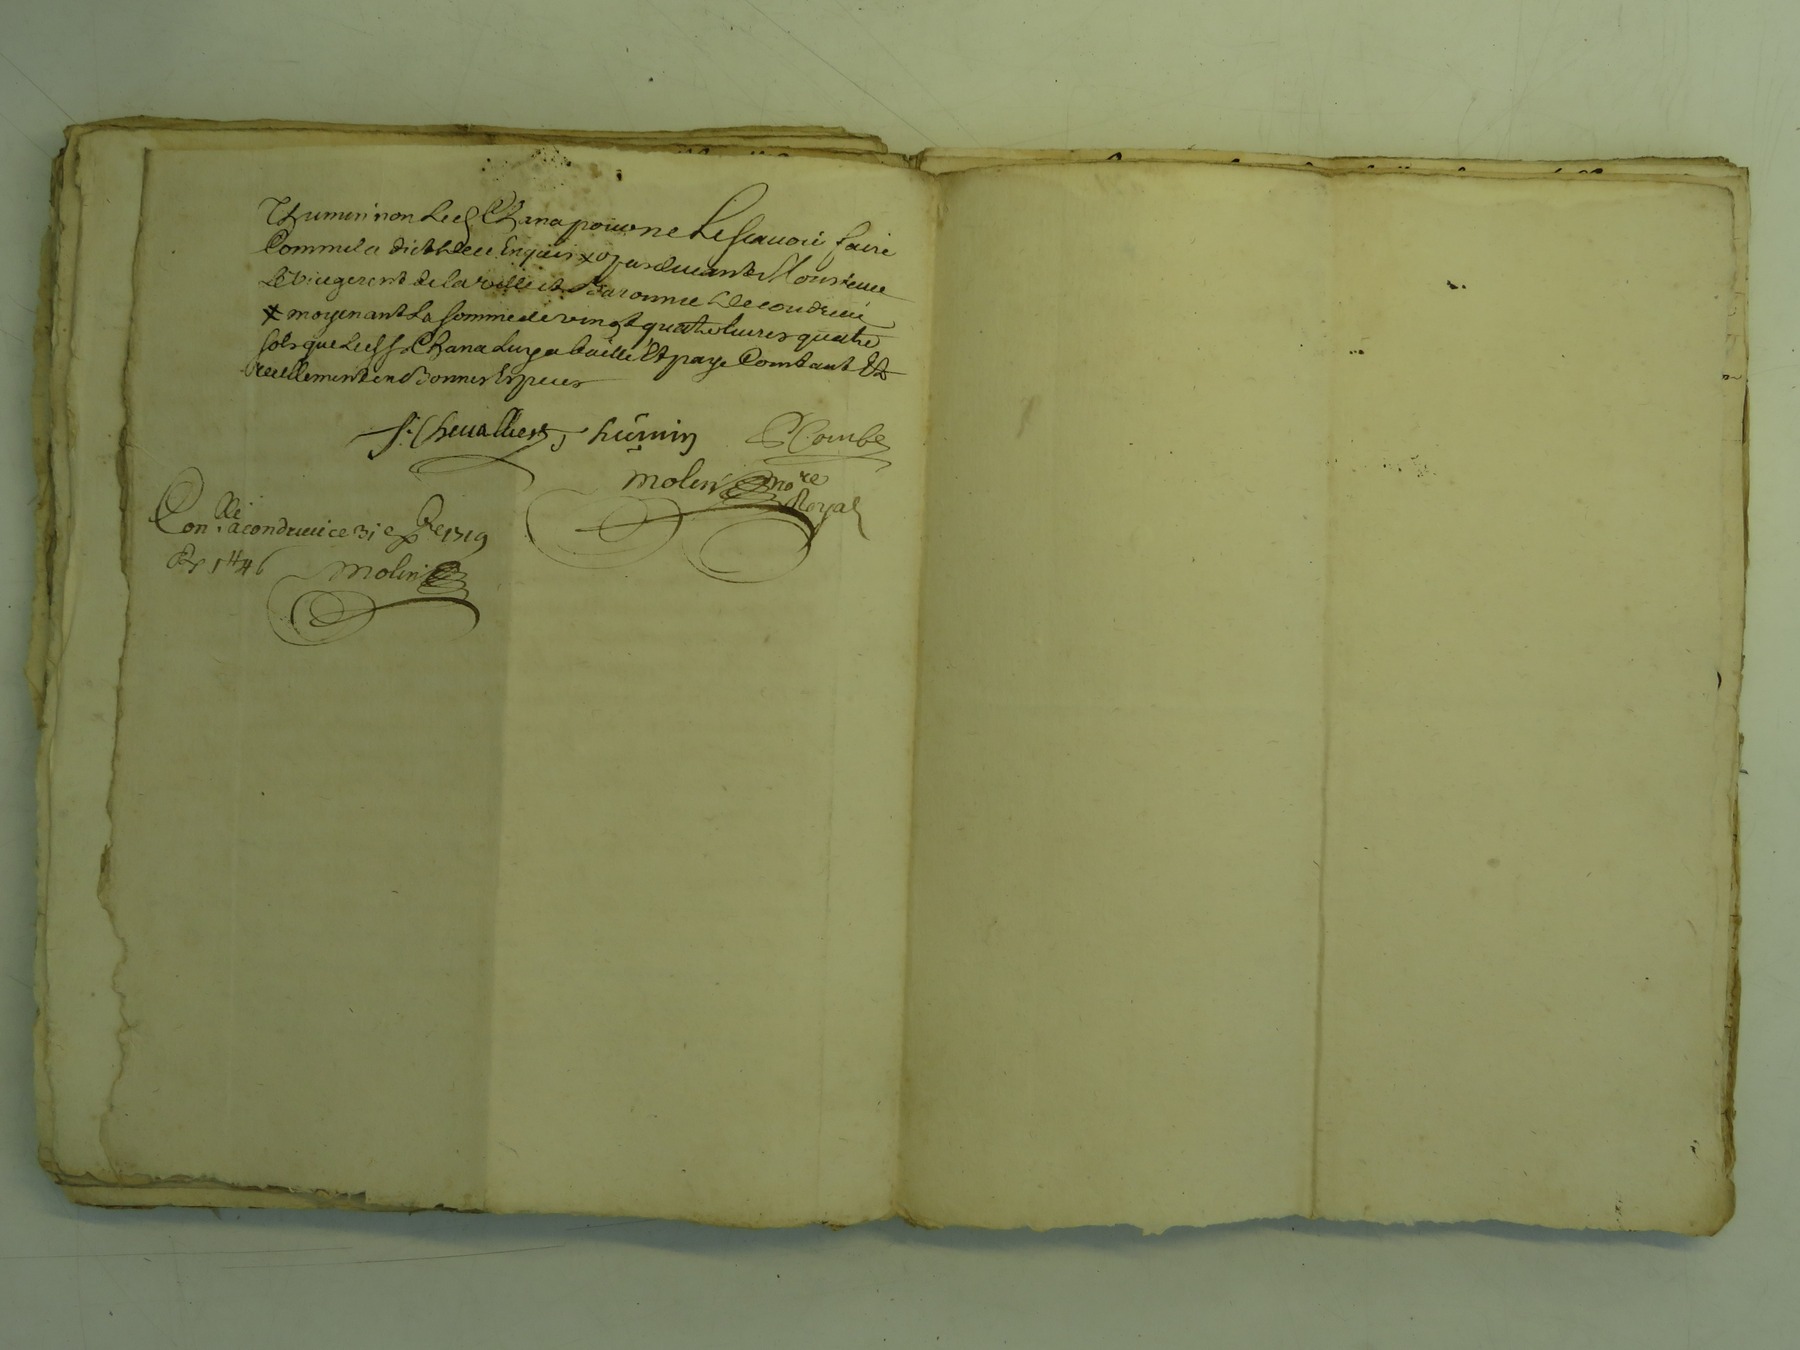 Thumin non Led Chana pour ne Le scauoir faire
Comme la dict Enquis x par deuant Monsieur
Le Viegerent de la ville et Baronnie De condrieu
x moyenant La somme de vingt quatre liures quatre
sols que Led s. Chana Luy a baillé Et paye Contant Et
reellement en Bonnes Especes
s. Cheuallier, thûmin P Combe
molin no.re
Royal
Con.lle a condrieu ce 31e xbre 1719
Rx 1tt 4s 6
molin